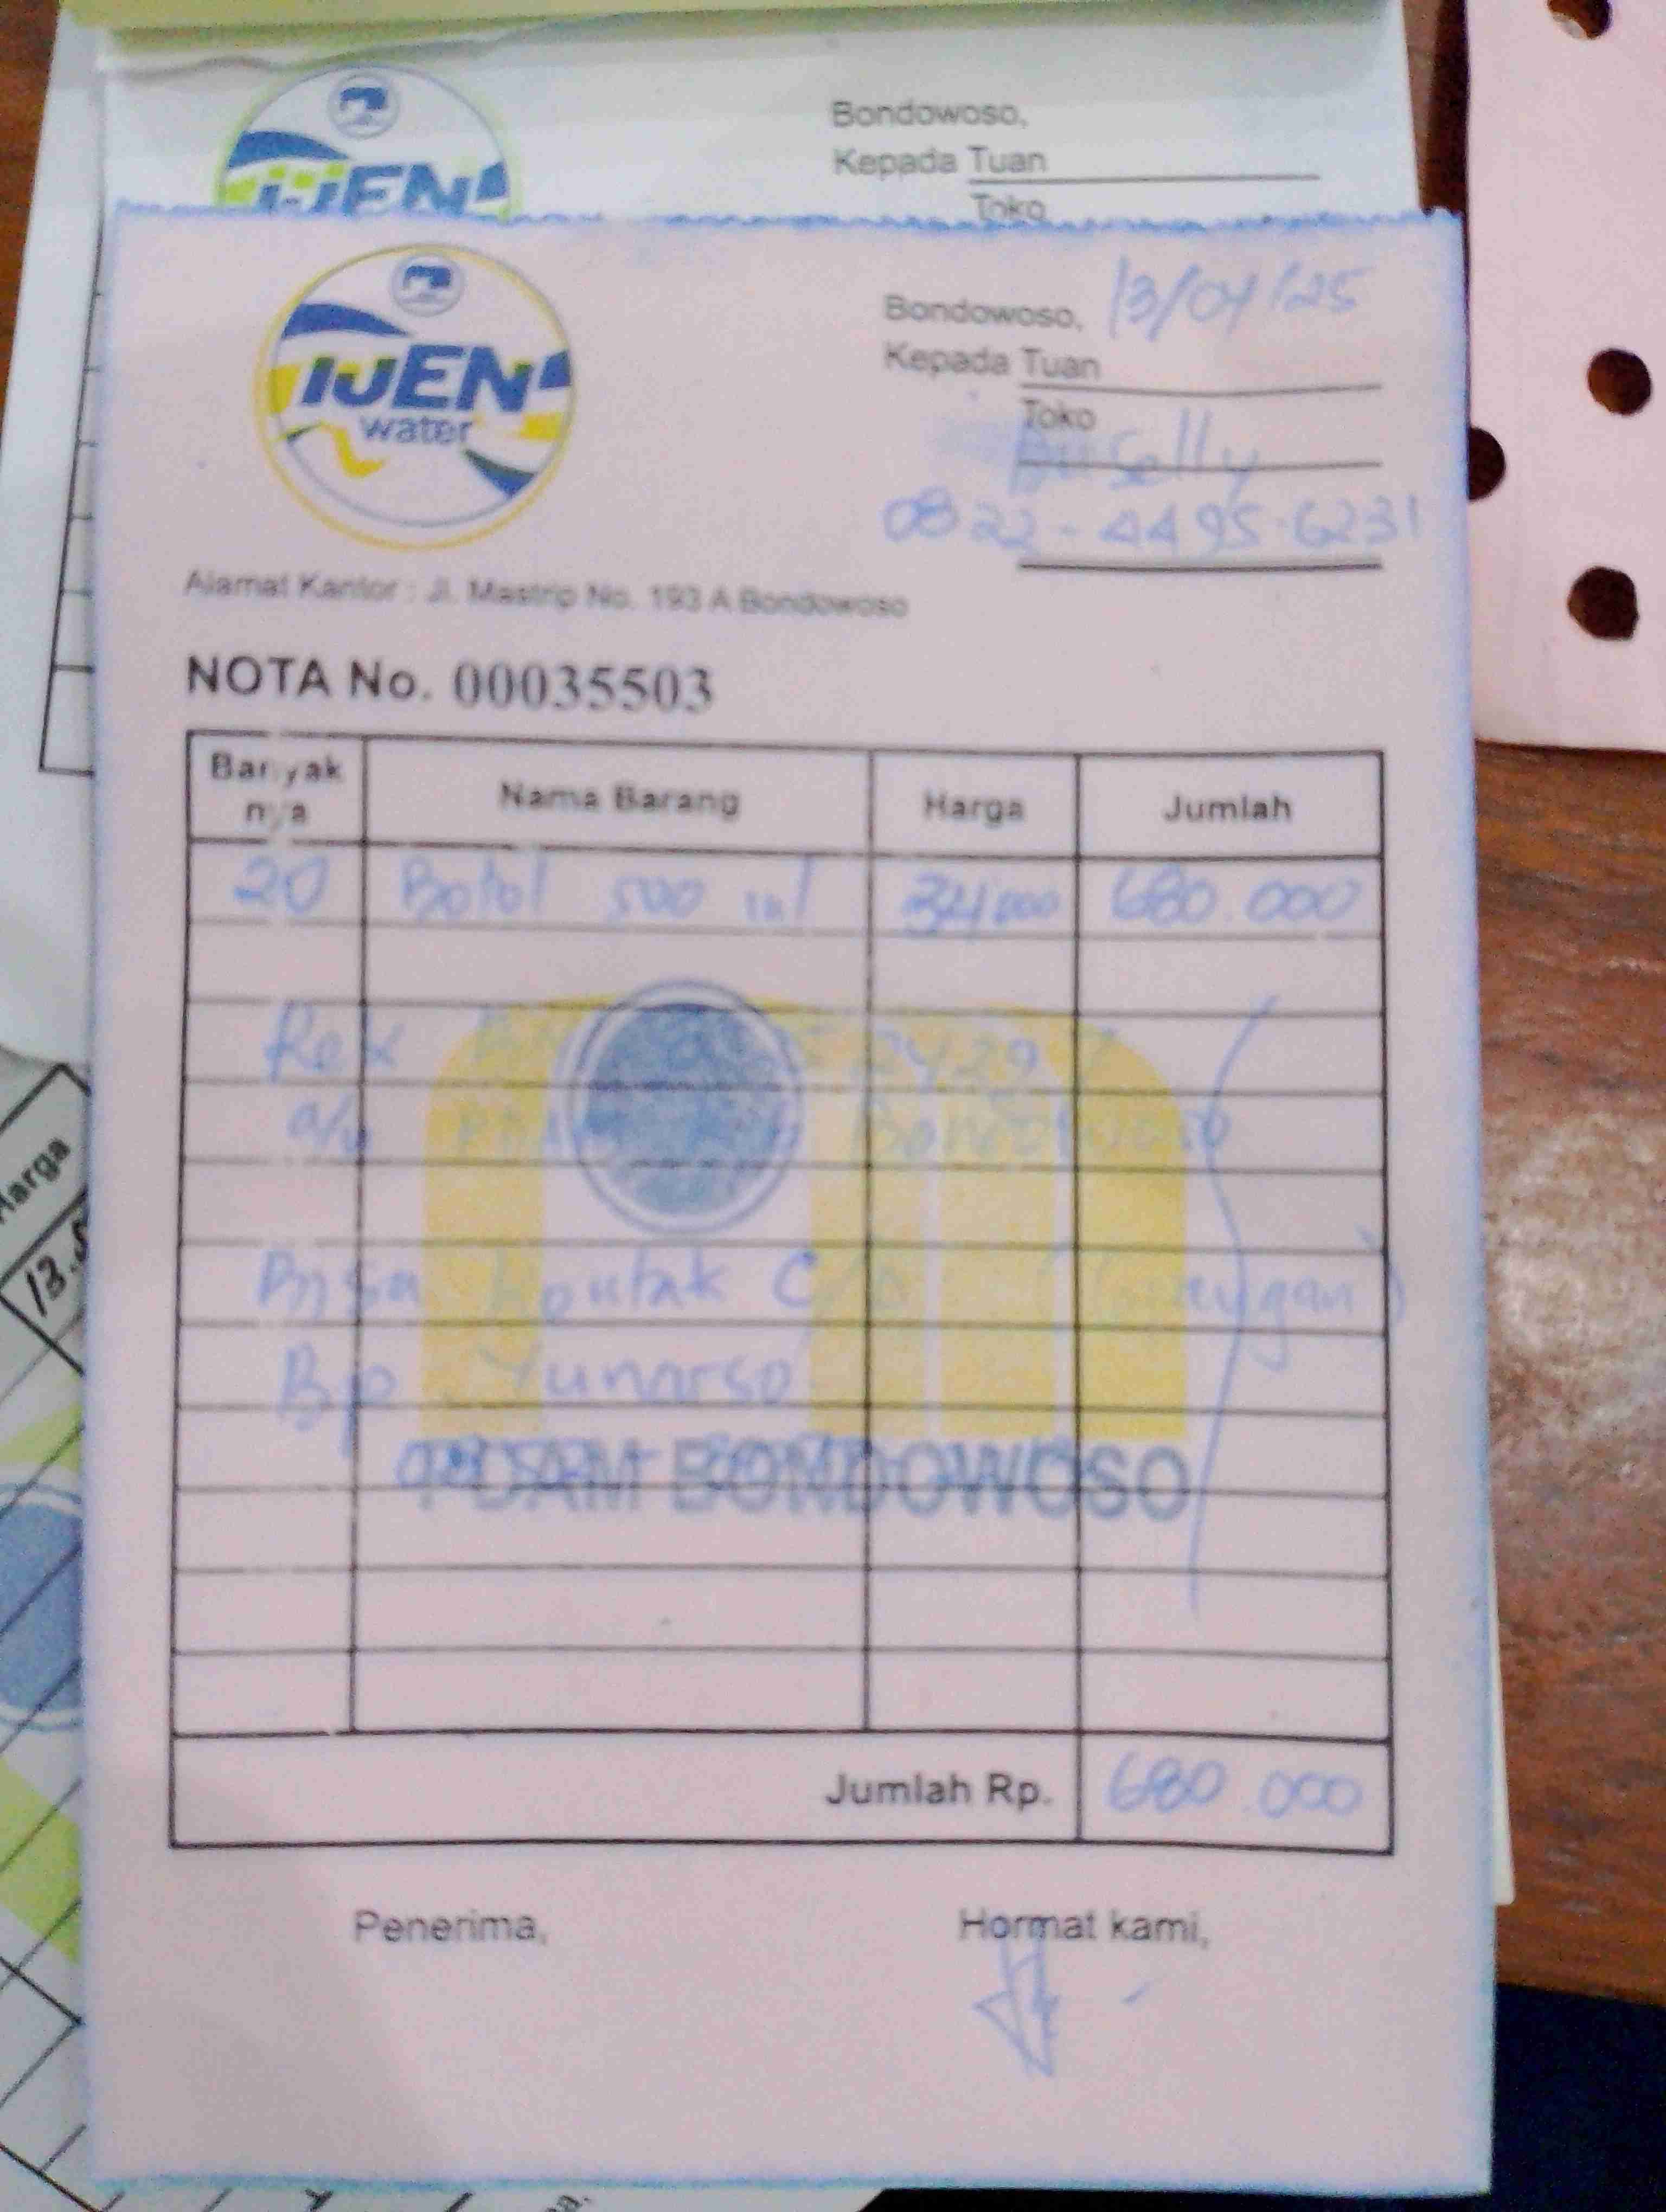 Bondowoso,
Kepada Tuan
Toko
IJEN
IJEN
water
Bondowoso, 13/04/25
Kepada Tuan
Toko
Bu Selly
0822-4495-6231
Alamat Kantor : Jl. Mastrip No. 193 A Bondowoso
NOTA No. 00035503
Banyak nya Nama Barang Harga Jumlah
20 Botol 500 ml 34.000 680.000
Rek
a/n Bondowoso
Bisa kontak
Bp. Yunarso
PDAM BONDOWOSO
Jumlah Rp. 680.000
Penerima, Hormat kami,
Harga